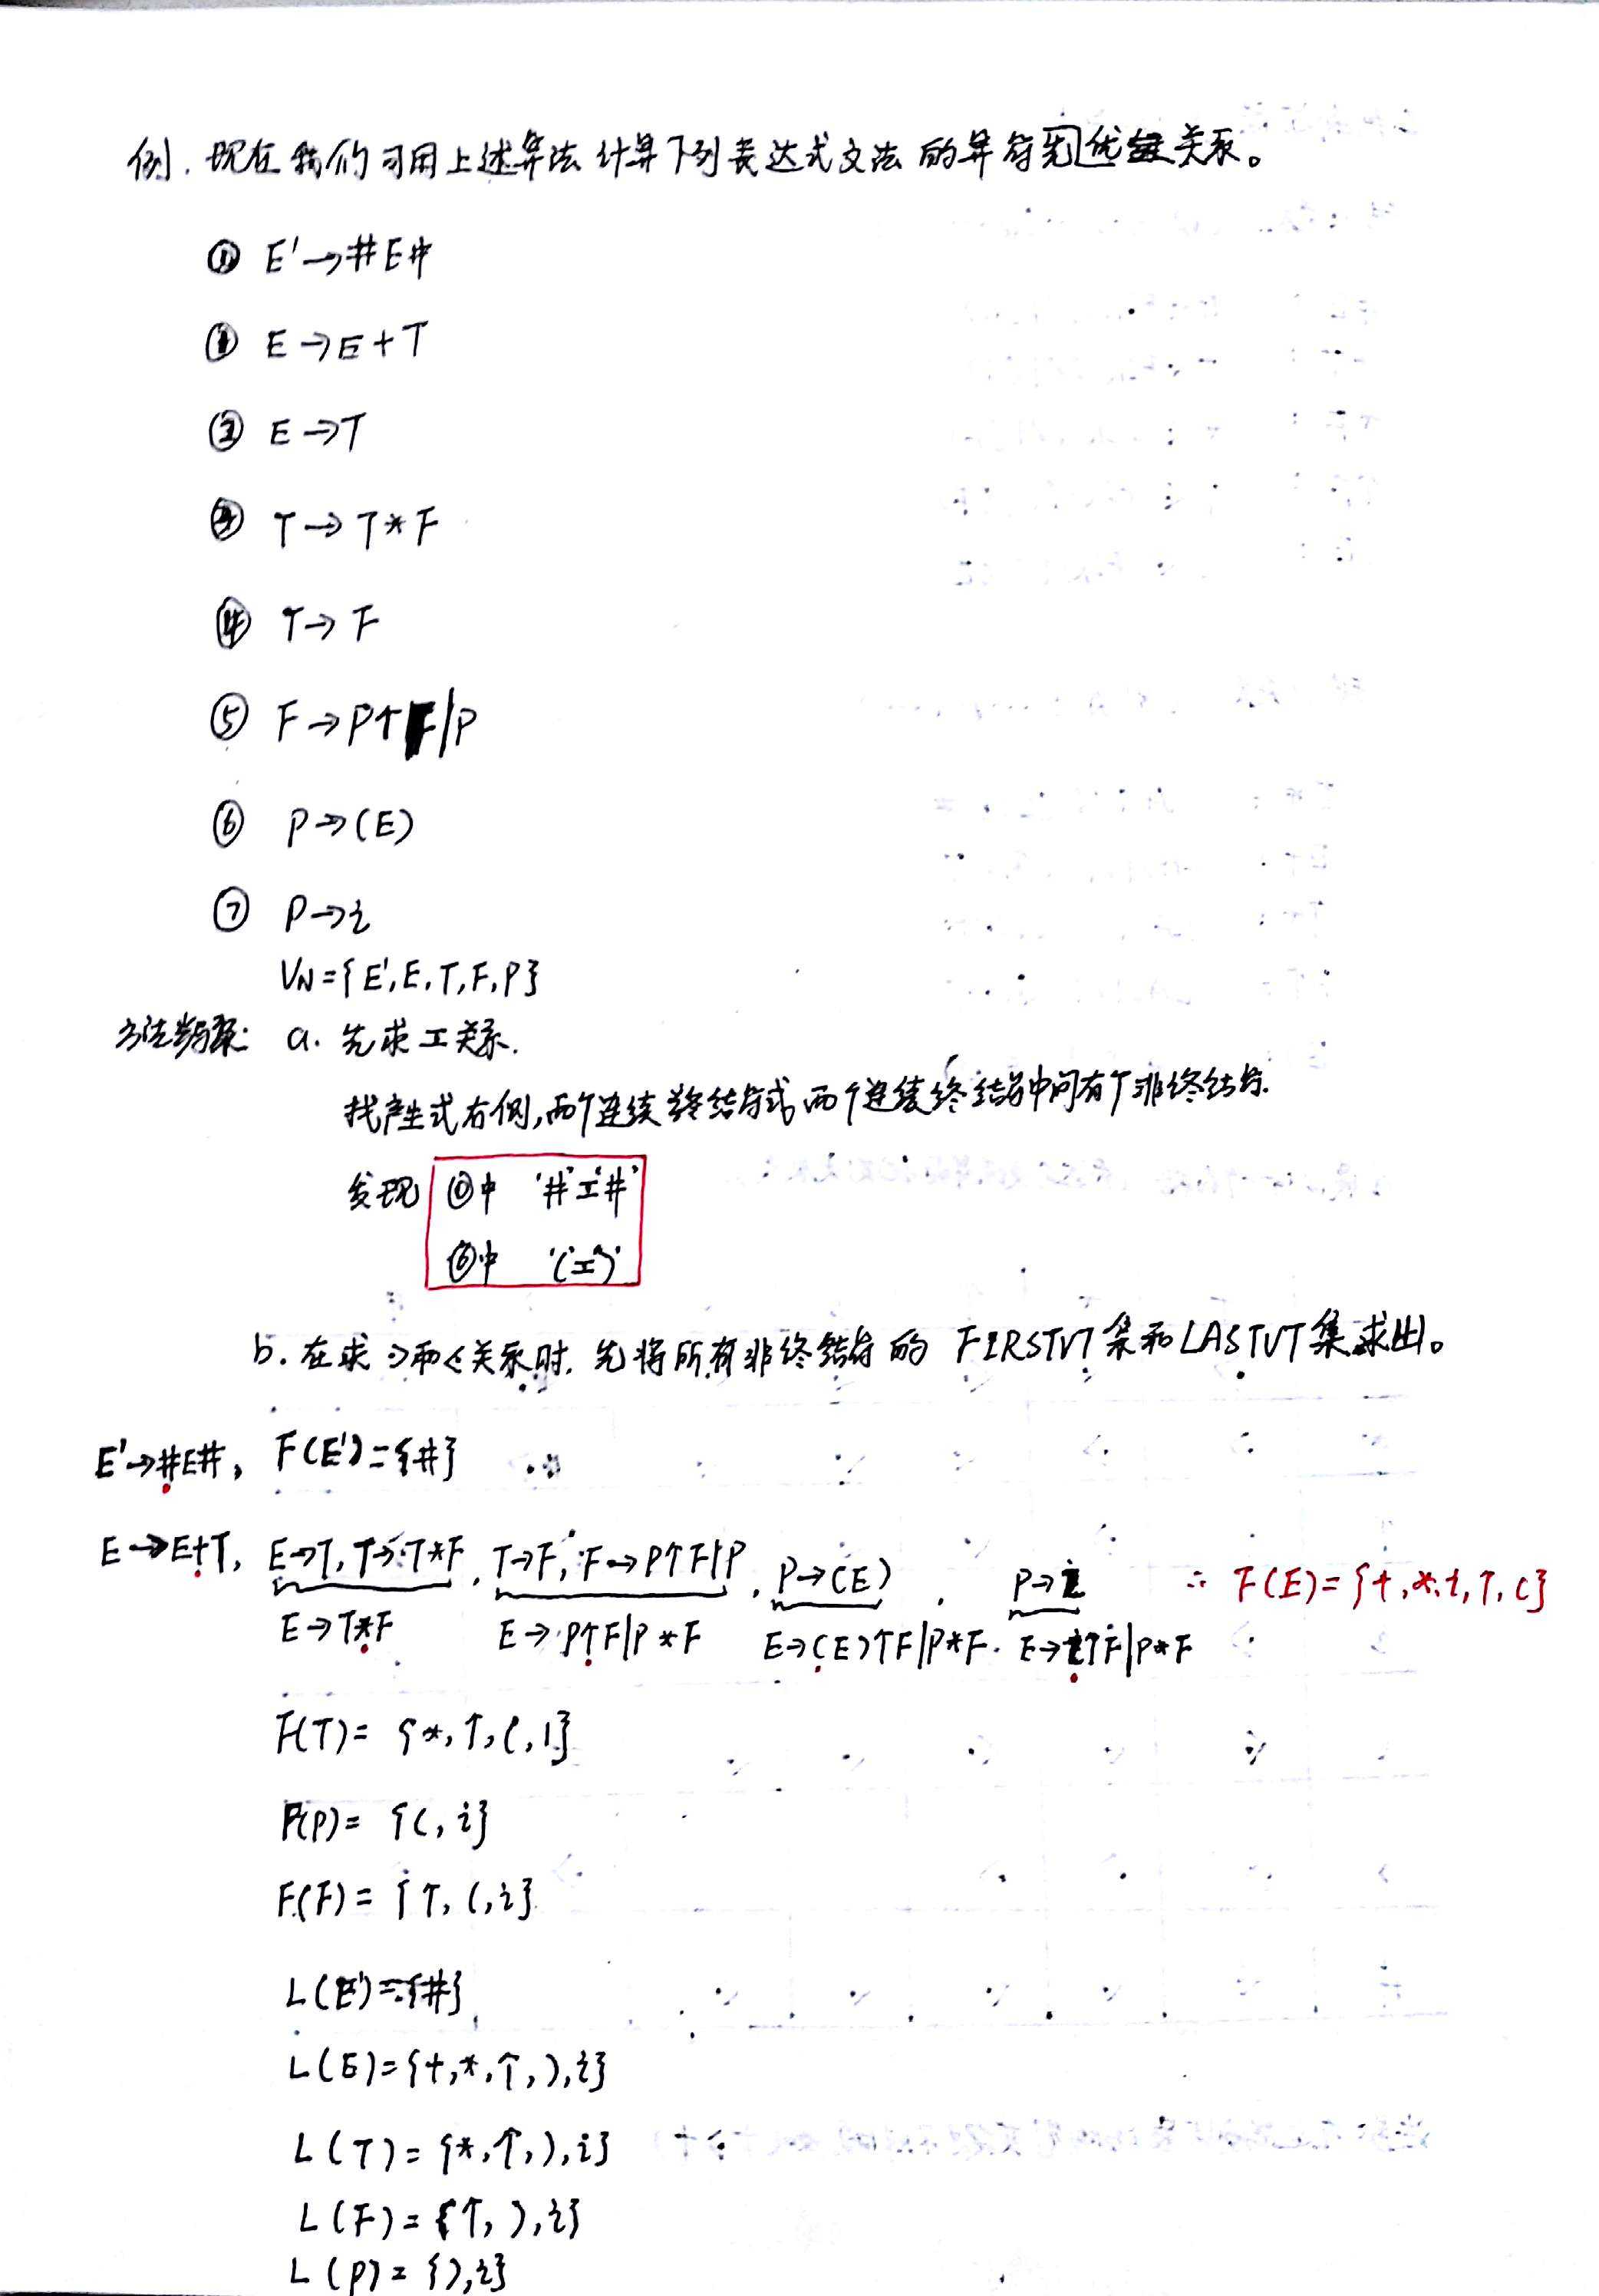 例. 现在我们可用上述算法计算下列表达式文法的算符优先关系。
⓪ E'→#E#
① E→E+T
② E→T
③ T→T*F
④ T→F
⑤ F→P↑F|P
⑥ P→(E)
⑦ P→i
VN={E',E,T,F,P}
方法步骤: a. 先求工关系.
找产生式右侧,两个连续终结符或两个连续终结符中间有个非终结符.
发现 ⓪中 '#'工'#'
⑥中 '('工')'
b. 在求⋗和⋖关系时. 先将所有非终结符的 FIRSTVT集和LASTVT集求出。
E'→#E#, F(E')={#}
E→E+T, E→T,T→T*F, T→F, F→P↑F|P, P→(E), P→i ∴ F(E)={+,*,i,↑,(}
E→T*F E→P↑F|P*F E→(E)↑F|P*F. E→i↑F|P*F
F(T)= {*,↑,(,i}
F(P)= {(,i}
F(F)= {↑,(,i}
L(E')={#}
L(E)={+,*,↑,),i}
L(T)={*,↑,),i}
L(F)={↑,),i}
L(P)={),i}